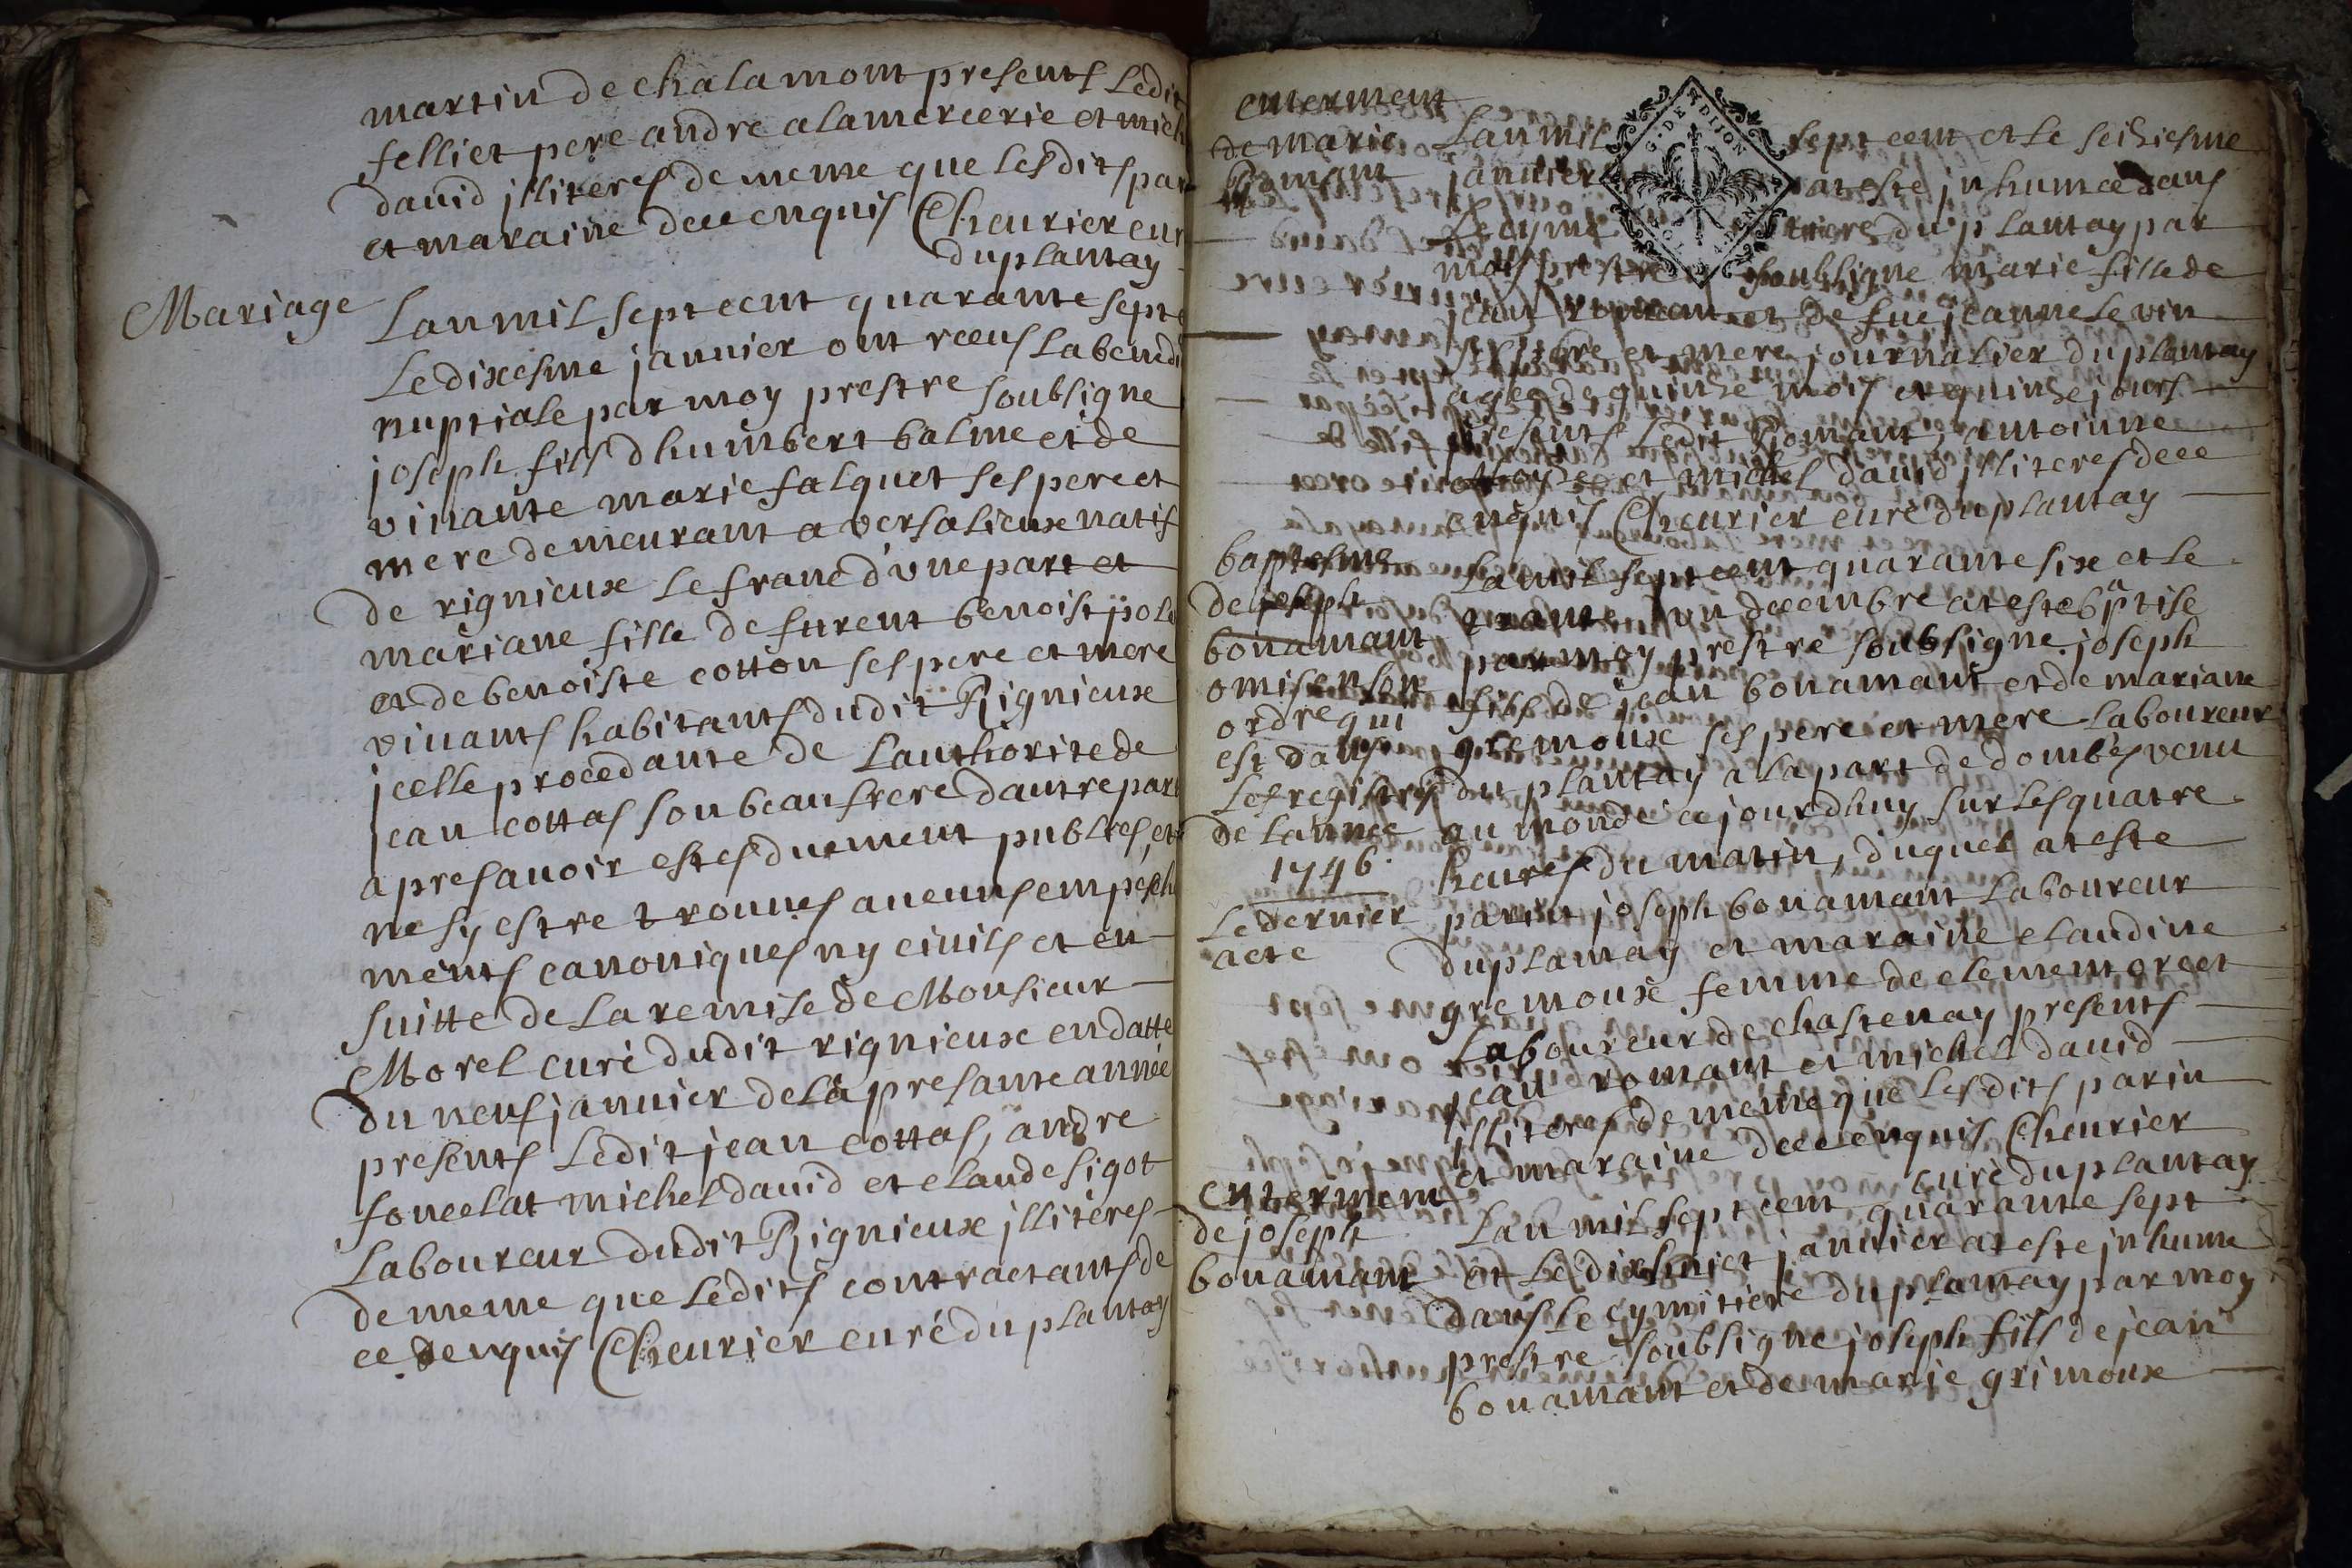 martin de chalamont presents Ledit
fellier pere andre alamercerie et mich
david jlliteres de meme que lesdits par
et maraine dece enquis Cheurier cur
duplantay
Mariage
Lanmil sept cent quarante sept e
Le dixesme januier ont receus labenedi
nuptiale par moy prestre soubsigne
joseph fils dhumbert balme et de
viuante marie falquet ses pere et
mere demeurant a versalieux natif
de rignieux lefranc d'vne part et
mariane fille de furent benoist polo
et de benoiste cotton ses pere et mere
viuants habitants dudit Rignieux
jcelle procedante de Lauthorite de
jean cottas son beau frere dautre part
apres auoir estes duement publies, et
ne sy estre trouues aucuns empesch
ments canoniques ny ciuils et en
suitte de la remise de Monsieur
Morel curé dudit rignieux en datte
du neuf januier de la presante année
presents Ledit jean cottas, andre
foncelat michel david et claude sigot
Laboureur dudit Rignieux jlliteres
de meme que ledits contractants de
ce denquis Cheurier curé du plantay
enterment
de marie
Romant
Lanmil sept cent et le seiziesme
januier at este jnhumee dans
Le cyme tiere du plantay par
moy prestre soubsigne marie fille de
jean romant et de fue jeanne levin
ses pere et mere journalier du plantay
agee de quinze mois et quinze jours
presents Ledit Romant, antoinne
et michel david jlliteres dece
enquis Cheurier curé du plantay
baptesme
de joseph
bonamant
omis en son
ordre qui
est dans
les registres
de lannee
1746.
Le dernier
acte
Lanmil sept cent quarante six et le
trante vn decembre at este baptise
par moy prestre soubsigne joseph
fils de jean bonamant et de mariane
gremoux ses pere et mere Laboureur
du plantay a la part de dombes venu
au monde ce jourdhuy sur les quatre
heures du matin, duquel at este
parin joseph bonamant Laboureur
du plantay et maraine claudine
gremoux femme de clement orcet
Laboureur de chastenay presents
jean romant et michel david
jlliteres de meme que lesdits parin
et maraine dece enquis Cheurier
curé du plantay
enterment
de joseph
bonamant
Lan mil sept cent quarante sept
et le dixhuict januier at este jnhume
dans le cymitiere du plantay par moy
prestre soubsigne joseph fils de jean
bonamant et de marie grimoux